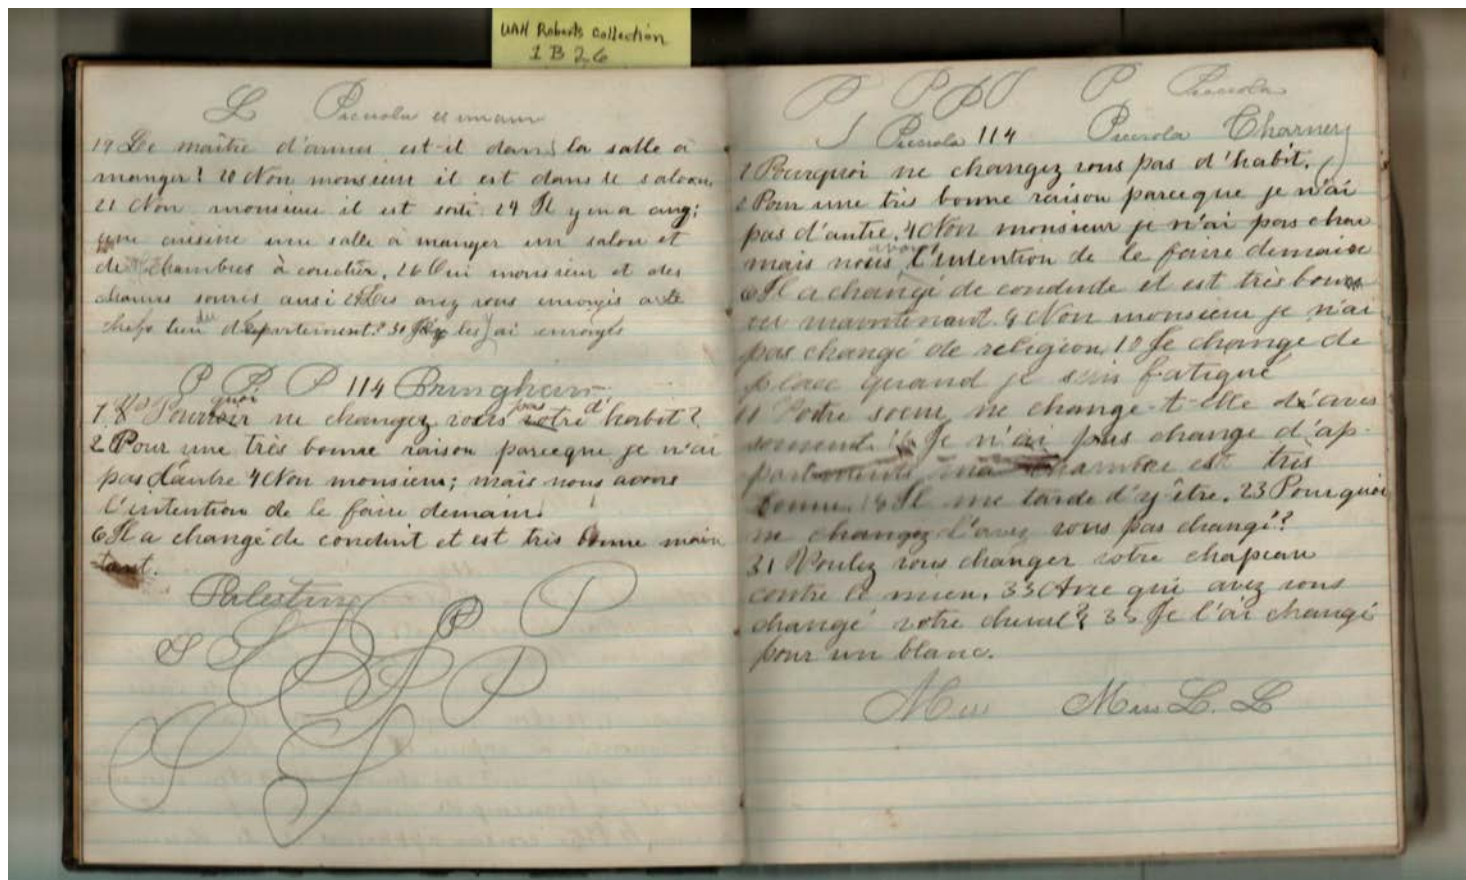 UAH Roberts Collection
1 B 26
L Picciola
19 Le maître d'armes est-il dans la salle à
manger? 20 Non monsieur il est dans le salon.
21 Non monsieur il est sorti. 24 Il y en a cinq;
une cuisine une salle à manger un salon et
de chambres à coucher. 26 Oui monsieur et des
souris aussi avez vous envoyés
lieu département? 30 les ai envoyés
P P P 114
1 Pourquoi ne changez vous pas votre d'habit?
2 Pour une très bonne raison parceque je n'ai
pas d'autre 4 Non monsieur; mais nous avons
l'intention de le faire demain.
6 Il a changé de conduit et est très bonne main
tant.
Palestine
S P P
P
P P P P P Picciola
Picciola 114 Picciola Charney
1 Pourquoi ne changez vous pas d'habit.
2 Pour une très bonne raison parceque je n'ai
pas d'autre. 4 Non monsieur je n'ai pas
mais nous avons l'intention de le faire demain
6 Il a changé de conduite et est très bonne
maintenant. 9 Non monsieur je n'ai
pas changé de religion. 10 Je change de
place quand je suis fatigué
11 Votre soeur ne change-t-elle
souvent. Je n'ai pas changé d'ap-
partements ma chambre est très
bonne. 18 Il me tarde d'y être. 23 Pourquoi
ne changez l'avez vous pas changé?
31 Voulez vous changer votre chapeau
contre le mien. 33 Avec qui avez vous
changé votre cheval? 35 Je l'ai changé
pour un blanc.
Miss Miss L. L